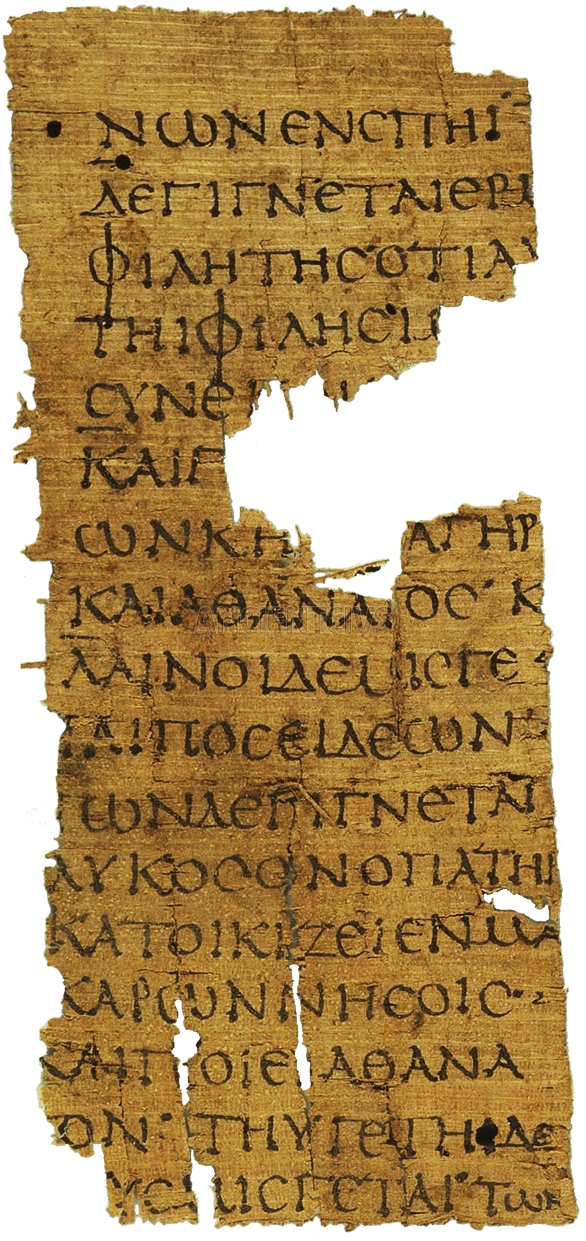 ΝωΝ ΕΝ СΠΗΙ
ΔΕ ΓΙΓΝΕΤΑΙ ΕΡΜ
ΦΙΛΗΤΗС ΟΤΙ ΑΥ
ΤΗΙ ΦΙΛΗСΙΜ
СΥΝΕ
ΚΑΙ Γ
ωΝ ΚΗ ΑΓΗΡ
ΚΑΙ ΑΘΑΝΑΤΟС Κ
ΛΑΙΝΟΙ ΔΕ ΜΙСΓΕ
ΤΑΙ ΠΟСΕΙΔΕωΝ
ΤωΝ ΔΕ ΓΙΓΝΕΤΑΙ
ΛΥΚΟС ΟΝ Ο ΠΑΤΗΡ
ΚΑΤΟΙΚΙΖΕΙ ΕΝ ΜΑ
ΚΑΡωΝ ΝΗСΟΙС
ΚΑΙ ΠΟΙΕΙ ΑΘΑΝΑ
ΤΟΝ ΤΗΥΓΕΤΗΙ ΔΕ
ΥС ΜΙСΓΕΤΑΙ ΤωΝ